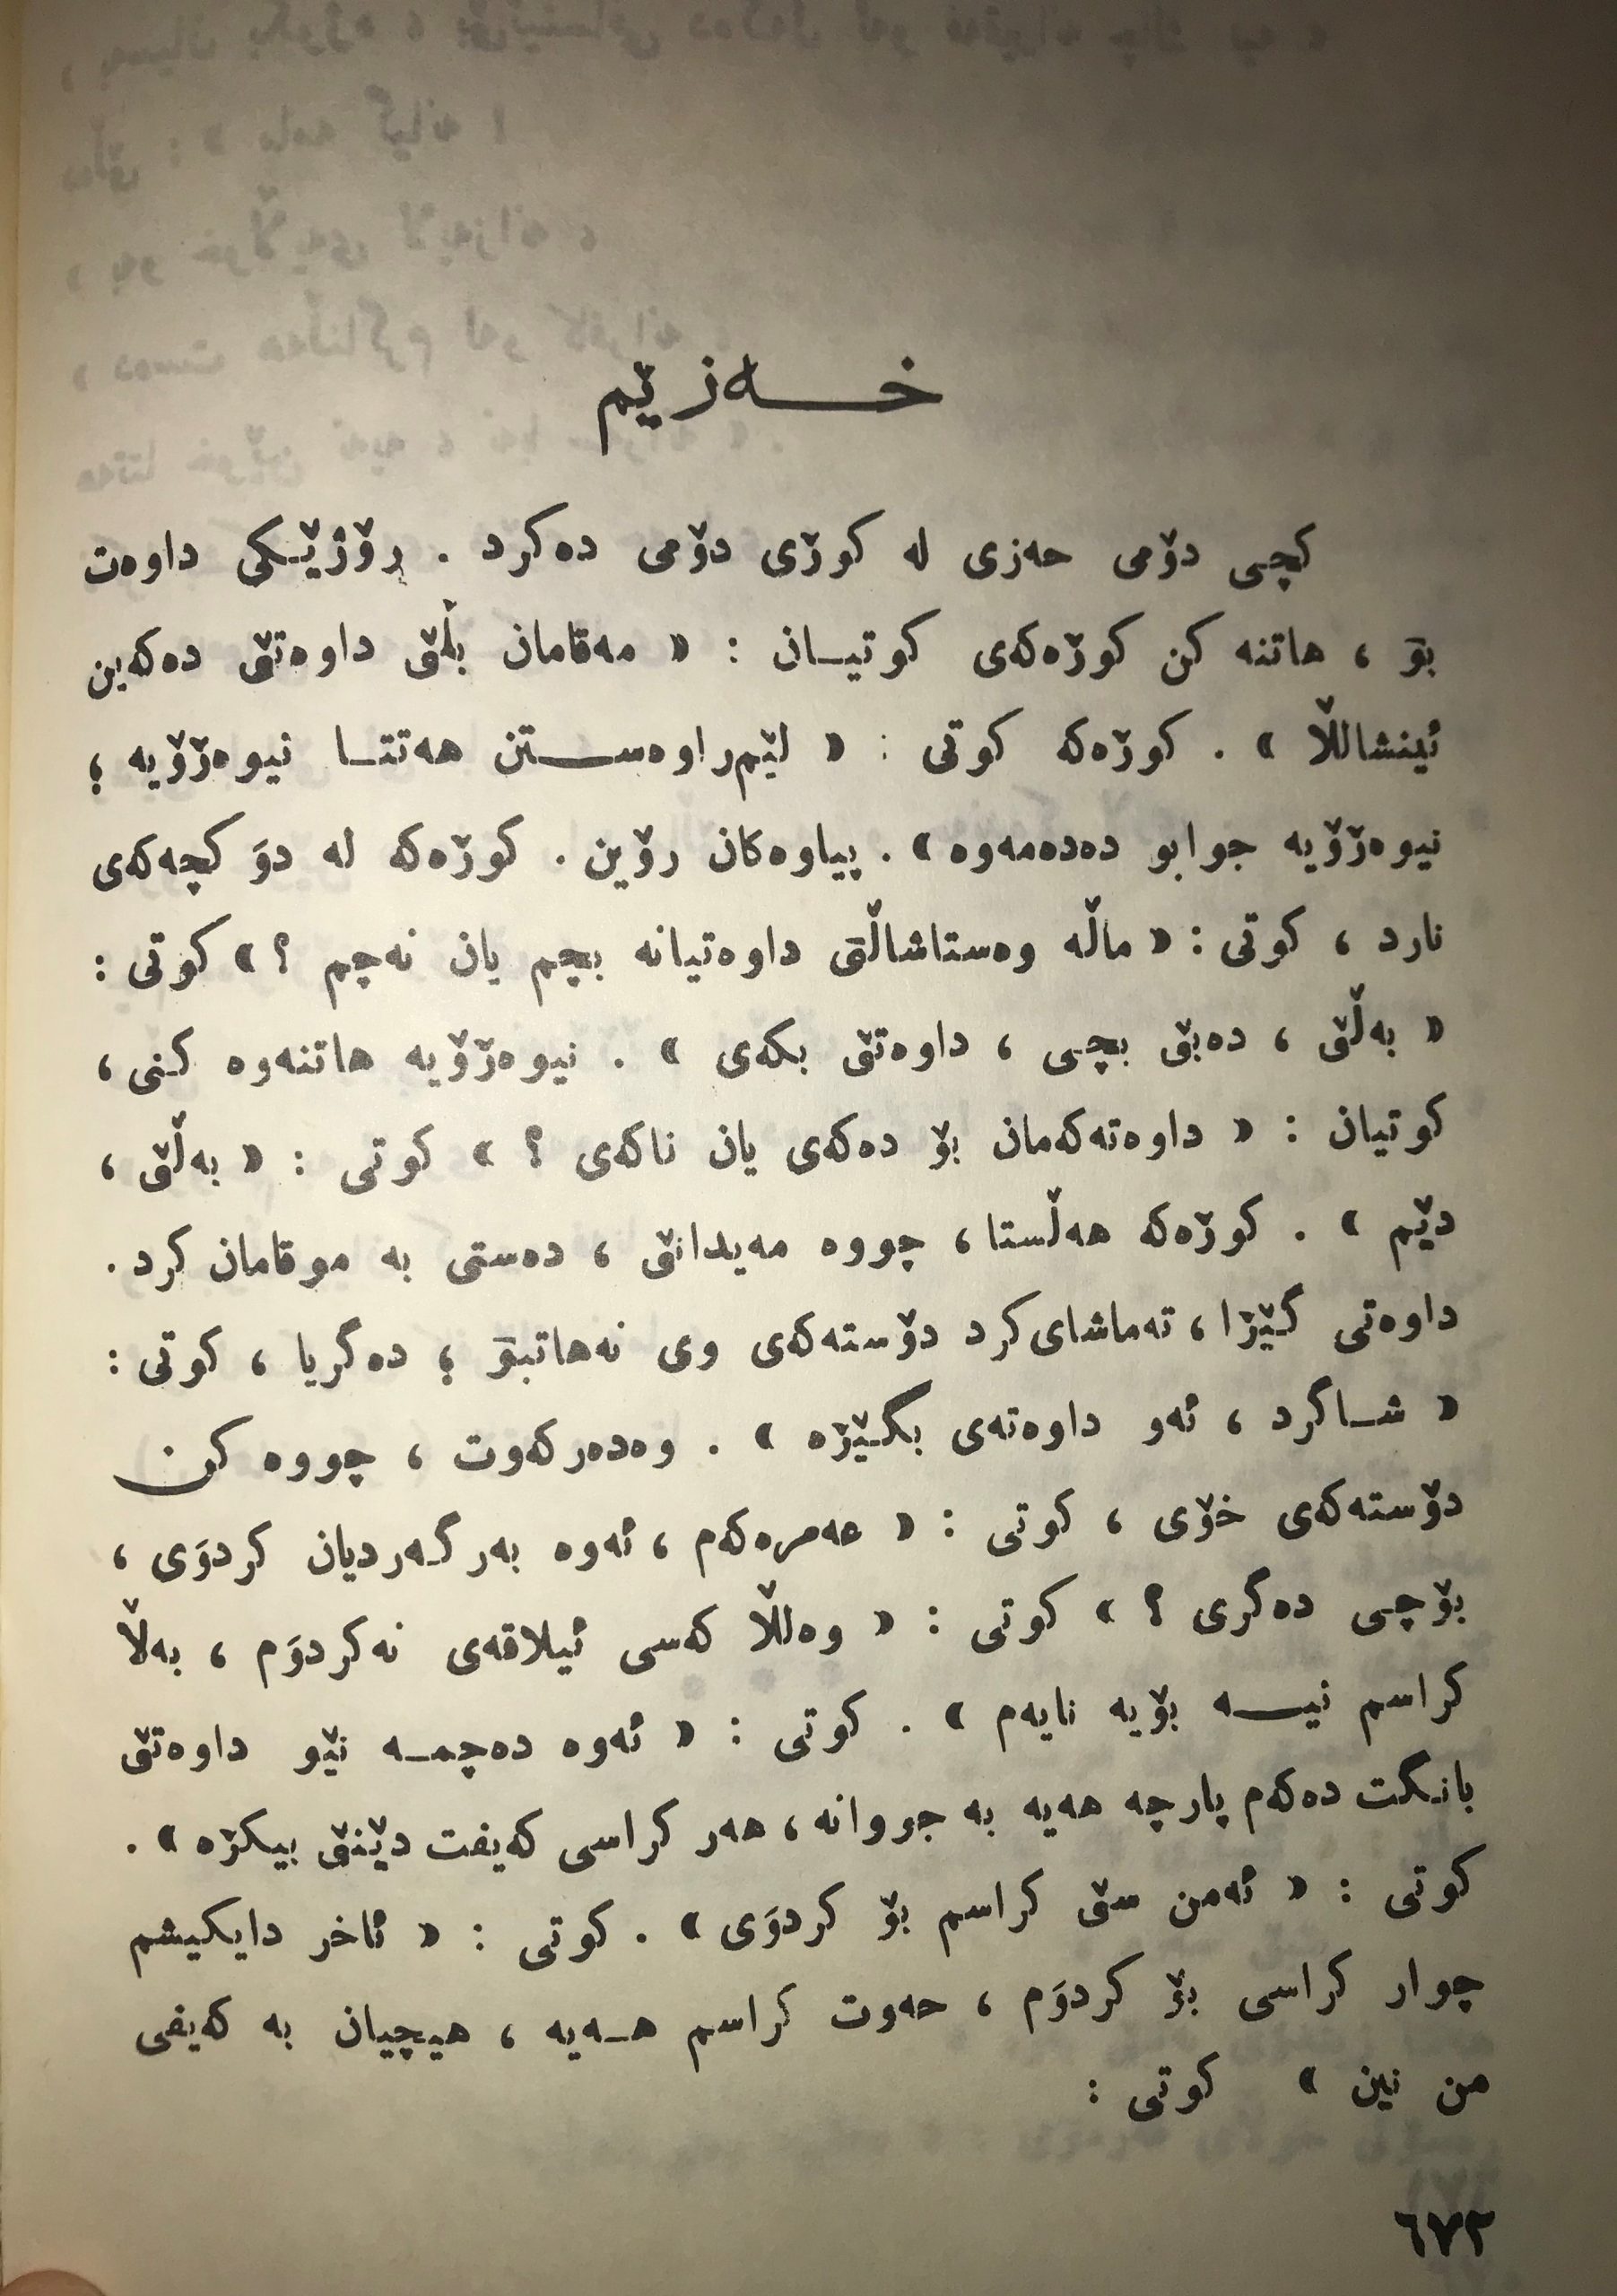 خەزێم
کچی دۆمی حەزی لە کوڕی دۆمی دەکرد . ڕۆژێکی داوەت
بۆ ، هاتنە کن کوڕەکەی کوتیان : « مەقامان بڵێ داوەتێ دەکەین
ئینشاللاڵا » . کوڕەکە کوتی : « لێم‌ڕاوەستن هەتتا نیوەڕۆیە ؛
نیوەڕۆیە جوابو دەدەمەوە » . پیاوەکان رۆین . کوڕەکە لە دوَ کچەکەی
نارد ، کوتی : « ماڵە وەستاشاڵێ داوەتیانە بچم یان نەچم ؟ » کوتی :
« بەڵێ ، دەبێ بچی ، داوەتێ بکەی » . نیوەڕۆیە هاتنەوە کنی ،
کوتیان : « داوەتەکەمان بۆ دەکەی یان ناکەی ؟ » کوتی : « بەڵێ ،
دێم » . کوڕەکە هەڵستا ، چووە مەیدانێ ، دەستی بە موقامان کرد .
داوەتی گێڕا ، تەماشای‌کرد دۆستەکەی وی نەهاتبۆ ؛ دەگریا ، کوتی :
« شاگرد ، ئەو داوەتەی بگێڕە » . وەدەرکەوت ، چووە کن
دۆستەکەی خۆی ، کوتی : « عەمرەکەم ، ئەوە بەرگەردیان کردوَی ،
بۆچی دەگری ؟ » کوتی : « وەللاڵا کەسی ئیلاقەی نەکردوَم ، بەڵا
کراسم نیسە بۆیە نایەم » . کوتی : « ئەوە دەچمە نێو داوەتێ
بانگت دەکەم پارچە هەیە بە جووانە ، هەر کراسی کەیفت دێنێ بیکڕە » .
کوتی : « ئەمن سێ کراسم بۆ کردوَی » . کوتی : « ئاخر دایکیشم
چوار کراسی بۆ کردوَم ، حەوت کراسم هەیە ، هیچیان بە کەیفی
من نین » کوتی :
٦٧٢